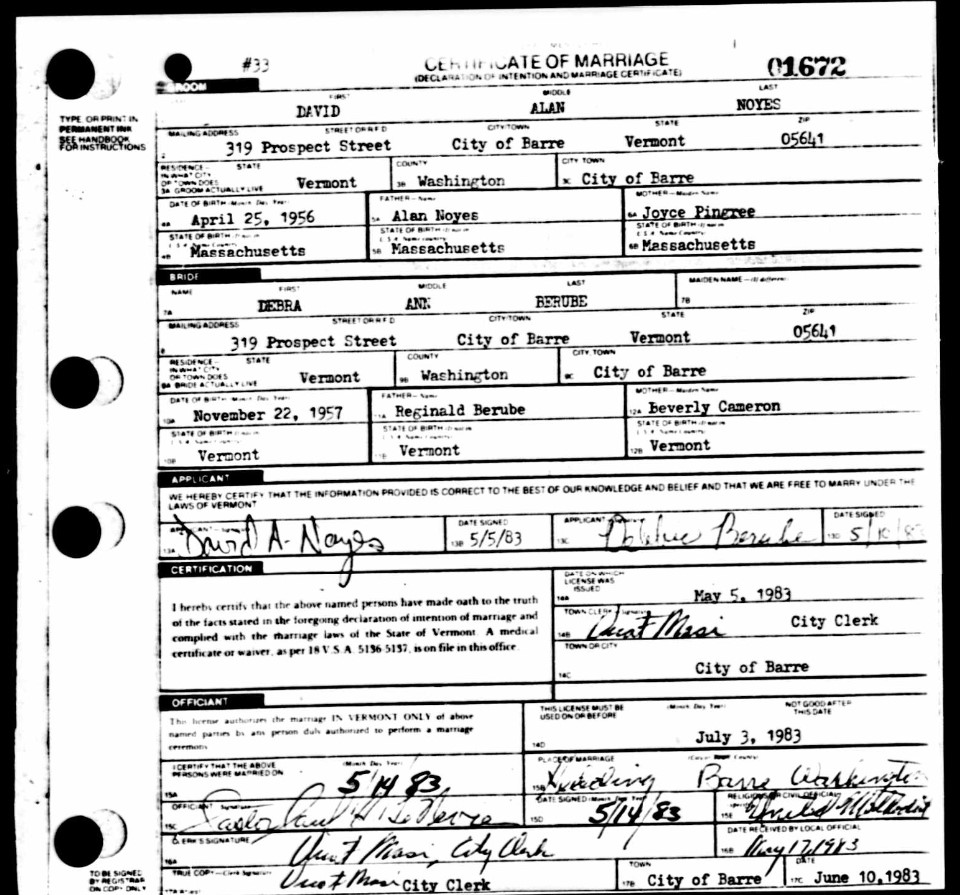 #33
CERTIFICATE OF MARRIAGE
01672
(DECLARATION OF INTENTION AND MARRIAGE CERTIFICATE)
GROOM
FIRST MIDDLE LAST
DAVID ALAN NOYES
TYPE OR PRINT IN
PERMANENT INK
SEE HANDBOOK
FOR INSTRUCTIONS
MAILING ADDRESS STREET OR R.F.D. CITY/TOWN STATE ZIP
319 Prospect Street City of Barre Vermont 05641
RESIDENCE - STATE COUNTY CITY TOWN
IN WHAT CITY
OR TOWN DOES
3A GROOM ACTUALLY LIVE Vermont 3B Washington 3C City of Barre
DATE OF BIRTH (Month, Day, Year) FATHER - Name MOTHER - Maiden Name
4A April 25, 1956 5A Alan Noyes 6A Joyce Pingree
STATE OF BIRTH STATE OF BIRTH STATE OF BIRTH
4B Massachusetts 5B Massachusetts 6B Massachusetts
BRIDE
NAME FIRST MIDDLE LAST MAIDEN NAME
7A DEBRA ANN BERUBE 7B
MAILING ADDRESS STREET OR R.F.D. CITY/TOWN STATE ZIP
319 Prospect Street City of Barre Vermont 05641
RESIDENCE - STATE COUNTY CITY TOWN
IN WHAT CITY
OR TOWN DOES
9A BRIDE ACTUALLY LIVE Vermont 9B Washington 9C City of Barre
DATE OF BIRTH (Month, Day, Year) FATHER - Name MOTHER - Maiden Name
10A November 22, 1957 11A Reginald Berube 12A Beverly Cameron
STATE OF BIRTH STATE OF BIRTH STATE OF BIRTH
10B Vermont 11B Vermont 12B Vermont
APPLICANT
WE HEREBY CERTIFY THAT THE INFORMATION PROVIDED IS CORRECT TO THE BEST OF OUR KNOWLEDGE AND BELIEF AND THAT WE ARE FREE TO MARRY UNDER THE
LAWS OF VERMONT
APPLICANT DATE SIGNED APPLICANT DATE SIGNED
13A David A. Noyes 13B 5/5/83 13C Berube 13D 5/10/83
CERTIFICATION
I hereby certify that the above named persons have made oath to the truth
of the facts stated in the foregoing declaration of intention of marriage and
complied with the marriage laws of the State of Vermont. A medical
certificate or waiver, as per 18 V.S.A. 5136-5137, is on file in this office.
DATE ON WHICH
LICENSE WAS
ISSUED
14A May 5, 1983
TOWN CLERK
14B Masi City Clerk
TOWN OR CITY
14C City of Barre
OFFICIANT
This license authorizes the marriage IN VERMONT ONLY of above
named parties by any person duly authorized to perform a marriage
ceremony
THIS LICENSE MUST BE (Month, Day, Year) NOT GOOD AFTER
USED ON OR BEFORE THIS DATE
14D July 3, 1983
I CERTIFY THAT THE ABOVE (Month, Day, Year) PLACE OF MARRIAGE
PERSONS WERE MARRIED ON
15A 5/14/83 15B Barre Washington
OFFICIANT Signature DATE SIGNED (Month, Day, Year) RELIGIOUS OR CIVIL OFFICIAL
15C Pastor Paul H. 15D 5/14/83 15E United Methodist
CLERK'S SIGNATURE DATE RECEIVED BY LOCAL OFFICIAL
16A Masi, City Clerk 16B May 17, 1983
TO BE SIGNED
BY REGISTRAR
ON COPY ONLY
TRUE COPY - Clerk Signature TOWN DATE
17A Masi City Clerk 17B City of Barre 17C June 10, 1983